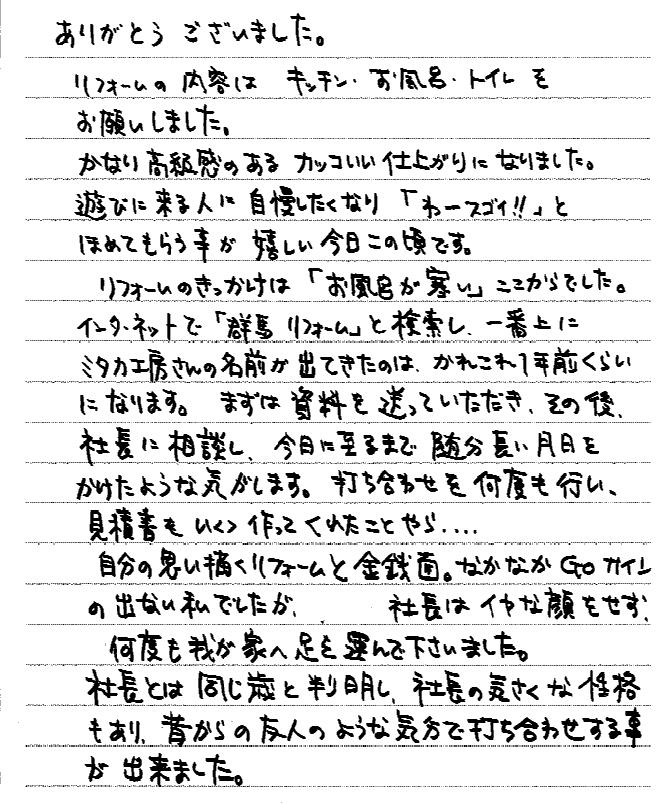 ありがとう ございました。
リフォームの 内容は キッチン・お風呂・トイレ を
お願いしました。
かなり 高級感のある カッコいい 仕上がりに なりました。
遊びに来る人に 自慢したくなり 「わースゴイ!!」と
ほめてもらう事が 嬉しい 今日この頃です。
リフォームのきっかけは 「お風呂が寒い」 ここからでした。
インターネットで 「群馬 リフォーム」と検索し、一番上に
ミタカ工房さんの名前が 出てきたのは、かれこれ1年前くらい
になります。 まずは 資料を 送っていただき、その後、
社長に 相談し、今日に至るまで 随分長い月日を
かけたような気がします。打ち合わせを 何度も 行い、
見積書も いくつ 作ってくれたことやら....
自分の思い描くリフォームと 金銭面。なかなか GO サイン
の 出ない 私でしたが、 社長は イヤな顔をせず、
何度も 我が 家へ 足を 運んで下さいました。
社長とは 同じ歳と 判明し、社長の気さくな 性格
もあり、昔からの友人のような気分で打ち合わせする事
が 出来ました。